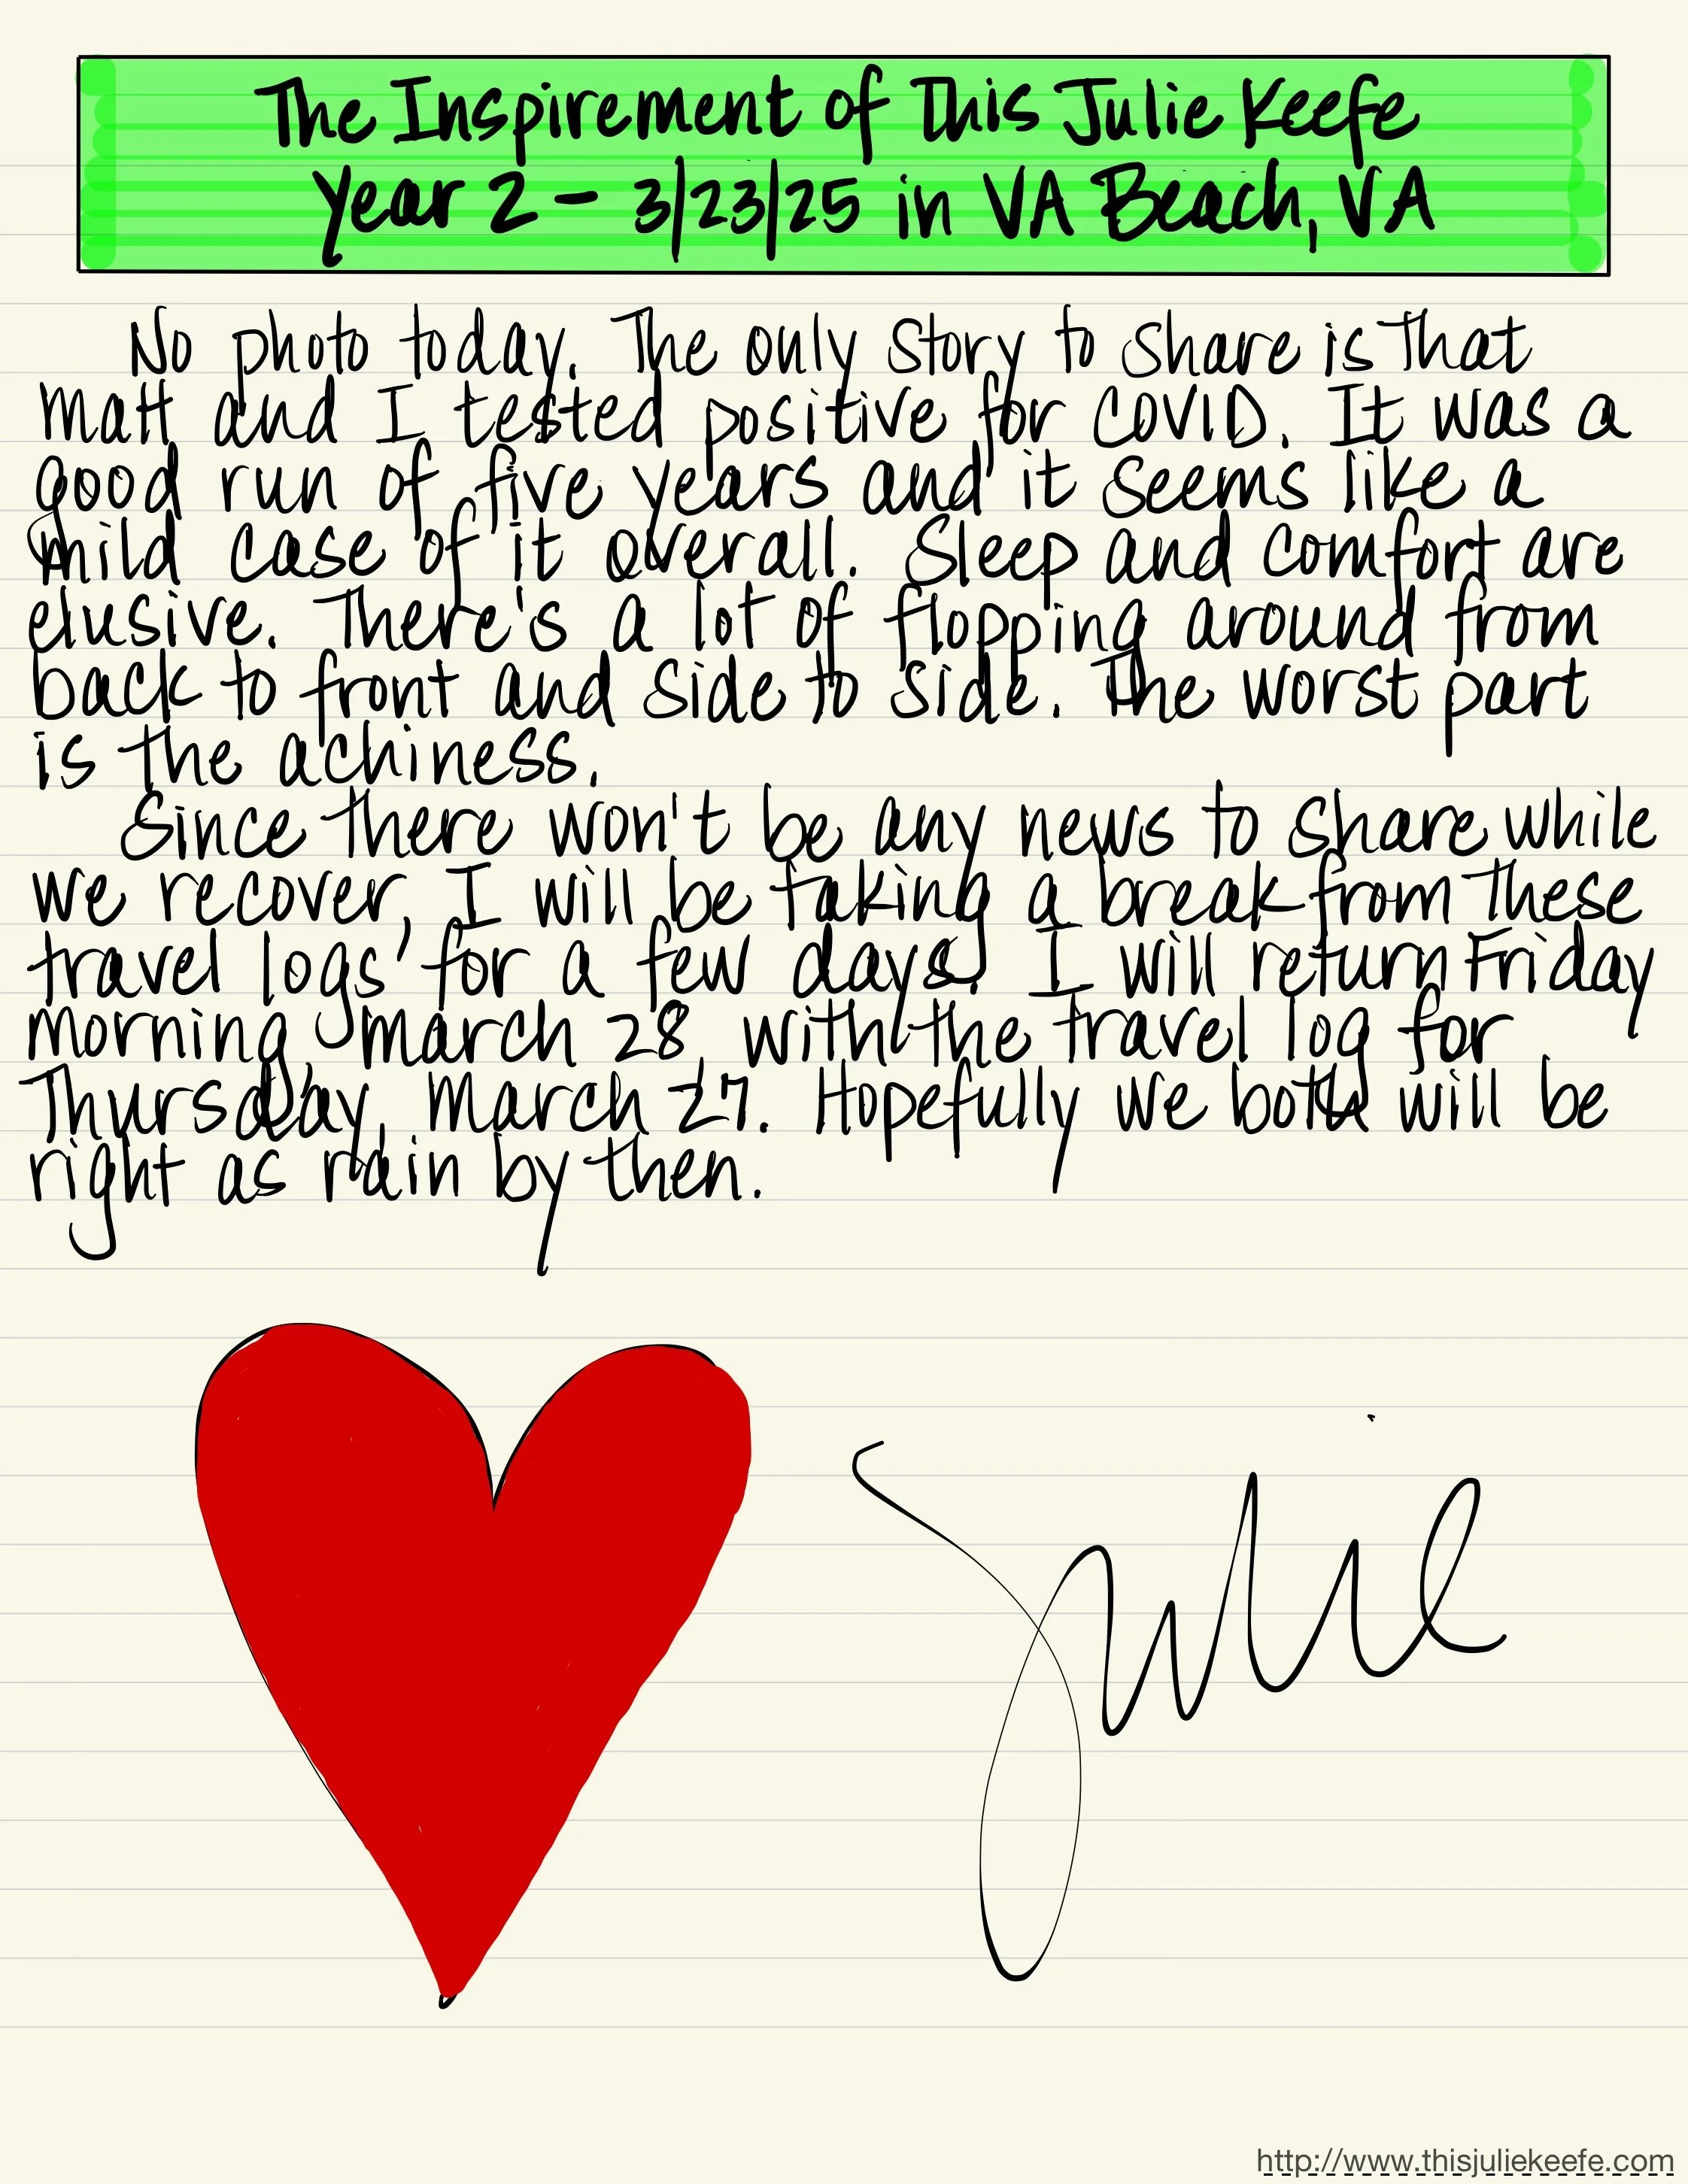 The Inspirement of This Julie Keefe
Year 2 - 3/23/25 in VA Beach, VA
No photo today. The only story to share is that
Matt and I tested positive for COVID. It was a
good run of five years and it seems like a
mild case of it overall. Sleep and comfort are
elusive. There's a lot of flopping around from
back to front and side to side. The worst part
is the achiness.
Since there won't be any news to share while
we recover, I will be taking a break from these
travel logs for a few days. I will return Friday
morning, March 28, with the travel log for
Thursday, March 27. Hopefully we both will be
right as rain by then.
Julie
http://www.thisjuliekeefe.com